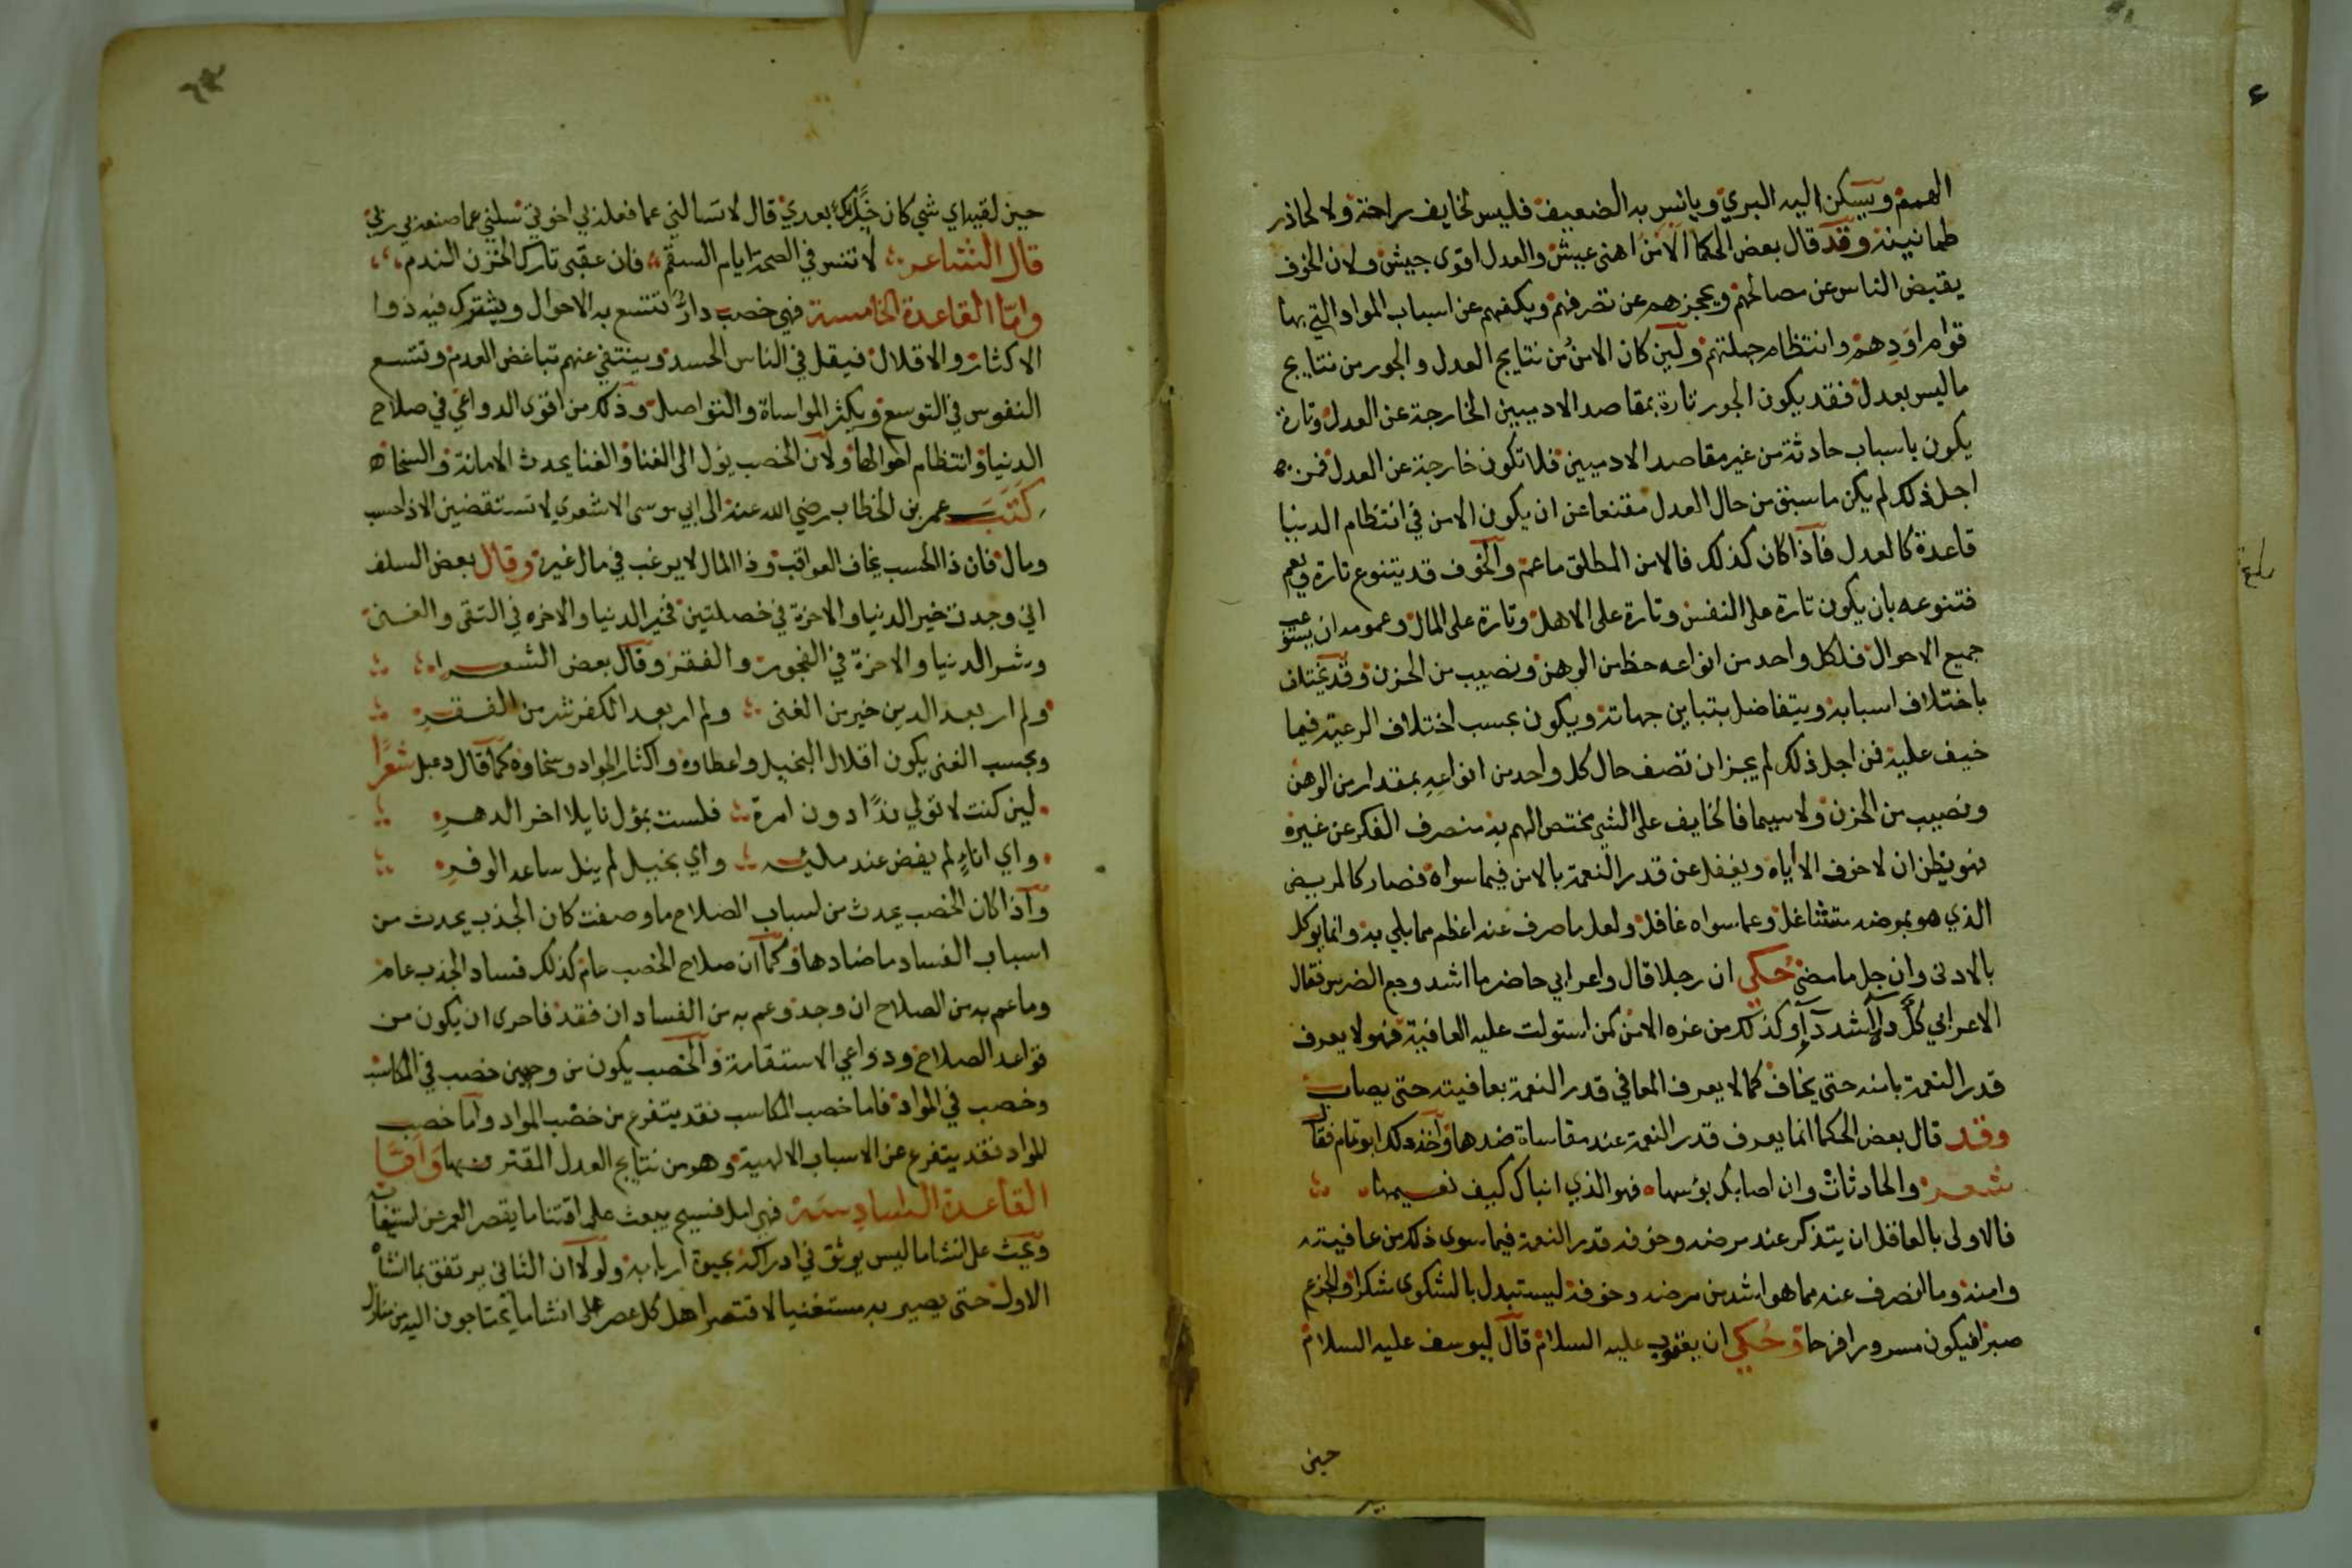 الهمم ويسكن اليه البري ويانس به الضعيف فليس لخايف راحة ولا لحاذر
طمانينة وقد قال بعض الحكما الامن اهنى عيش والعدل اقوى جيش ولان الخوف
يقبض الناس عن مصالحهم ويحجزهم عن تصرفهم ويكفهم عن اسباب المواد التي بها
قوام اودهم وانتظام جملتهم ولين كان الامن من نتايج العدل والجور من نتايج
ماليس بعدل فقد يكون الجور تارة بمقاصد الادميين الخارجة عن العدل وتارة
يكون باسباب حادثة من غير مقاصد الادميين فلا تكون خارجة عن العدل فمن
اجل ذلك لم يكن ما سبق من حال العدل مقنعا عن ان يكون الامن في انتظام الدنيا
قاعدة كالعدل فاذا كان كذلك فالامن المطلق ما عم والخوف قد يتنوع تارة ويعم
فتنوعه بان يكون تارة على النفس وتارة على الاهل وتارة على المال وعمومه ان يستوعب
جميع الاحوال فلكل واحد من انواعه حظ من الوهن ونصيب من الحزن وقد يختلف
باختلاف اسبابه ويتفاضل بتباين جهاته ويكون بحسب اختلاف الرعية فيما
خيف عليه فمن اجل ذلك لم يجز ان تصف حال كل واحد من انواعه بمقدار من الوهن
ونصيب من الحزن ولا سيما فالخايف على الشي مختص الهم به منصرف الفكر عن غيره
فهو يظن ان لا خوف الا اياه ويغفل عن قدر النعمة بالامن فيما سواه فصار كالمريض
الذي هو بمرضه متشاغل وعما سواه غافل ولعل ما صرف عنه اعظم مما بلي به وانما يوكل
بالادنى وان جل ما مضى حكي ان رجلا قال واعرابي حاضر ما اشد وجع الضرس فقال
الاعرابي كل داء اشد داء وكذلك من عزه الامن كمن استولت عليه العافية فهو لا يعرف
قدر النعمة بامنه حتى يخاف كما لا يعرف المعافي قدر النعمة بعافيته حتى يصاب
وقد قال بعض الحكما انما يعرف قدر النعمة عند مقاساة ضدها واخذ ذلك ابو تمام فقال
شعر والحادثات وان اصابك بؤسها فهو الذي انباك كيف نعيمها
فالاولى بالعاقل ان يتذكر عند مرضه وخوفه قدر النعمة فيما سوى ذلك من عافيته
وامنه وما انصرف عنه مما هو اشد من مرضه وخوفه ليستبدل بالشكوى شكرا وبالجزع
صبرا فيكون مسرورا فرحا وحكي ان يعقوب عليه السلام قال ليوسف عليه السلام
حين
حين لقيه اي شي كان خبرك بعدي قال لا تسالني عما فعله بي اخوتي سلني عما صنعه بي ربي
قال الشاعر لا تنس في الصحة ايام السقم فان عقبى تارك الحزن الندم
واما القاعدة الخامسة فهي خصب دار تتسع به الاحوال ويشترك فيه ذوا
الاكثار والاقلال فيقل في الناس الحسد وينتفي عنهم تباغض العدم وتتسع
النفوس في التوسع ويكثر المواساة والتواصل وذلك من اقوى الدواعي في صلاح
الدنيا وانتظام احوالها ولان الخصب يؤل الى الغنا والغنا يحدث الامانة والسخا
كتب عمر بن الخطاب رضي الله عنه الى ابي موسى الاشعري لا تستقضين الا ذا حسب
ومال فان ذا الحسب يخاف العواقب وذا المال لا يرغب في مال غيره وقال بعض السلف
اني وجدت خير الدنيا والاخرة في خصلتين فخير الدنيا والاخره في التقى والغنى
وشر الدنيا والاخرة في الفجور والفقر وقال بعض الشعرا
ولم ار بعد الدين خير من الغنى ولم ار بعد الكفر شر من الفقر
وبحسب الغنى يكون اقلال البخيل واعطاوه واكثار الجواد وسخاوه كما قال دعبل شعرا
لين كنت لا تولي ندا دون امرة فلست بمؤل نايلا اخر الدهر
واي اناء لم يفض عند مليه واي بخيل لم ينل ساعه الوفر
واذا كان الخصب يحدث من اسباب الصلاح ما وصفت كان الجذب يحدث من
اسباب الفساد ما ضادها وكما ان صلاح الخصب عام كذلك فساد الجذب عام
وما عم به من الصلاح ان وجد وعم به من الفساد ان فقد فاحرى ان يكون من
قواعد الصلاح ودواعي الاستقامة والخصب يكون من وجهين خصب في المكاسب
وخصب في المواد فاما خصب المكاسب فقد يتفرع من خصب المواد واما خصب
المواد فقد يتفرع عن الاسباب الالهية وهو من نتايج العدل المقترن بها واما
القاعدة السادسة فهي امل فسيح يبعث على اقتنا ما يقصر العمر عن استيعابه
ويحث على انشا ما ليس يوثق في ادراكه بحيوة اربابه ولولا ان الثاني يرتفق بما انشاه
الاول حتى يصير به مستغنيا لافتقر اهل كل عصر على انشا ما يحتاجون اليه من منازل